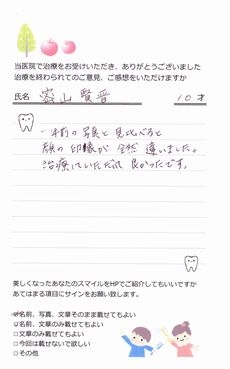 当医院で治療をお受けいただき、ありがとうございました
治療を終わられてのご意見、ご感想をいただけますか
氏名 山賢晋 10才
一年前の写真と見比べると
顔の印象が全然違いました。
治療していただいて良かったです。
美しくなったあなたのスマイルをHPでご紹介してもいいですか
あてはまる項目にサインをお願い致します。
名前、写真、文章そのまま載せてもよい
□名前、文章のみ載せてもよい
□文章のみ載せてもよい
□今回は載せないで欲しい
□その他